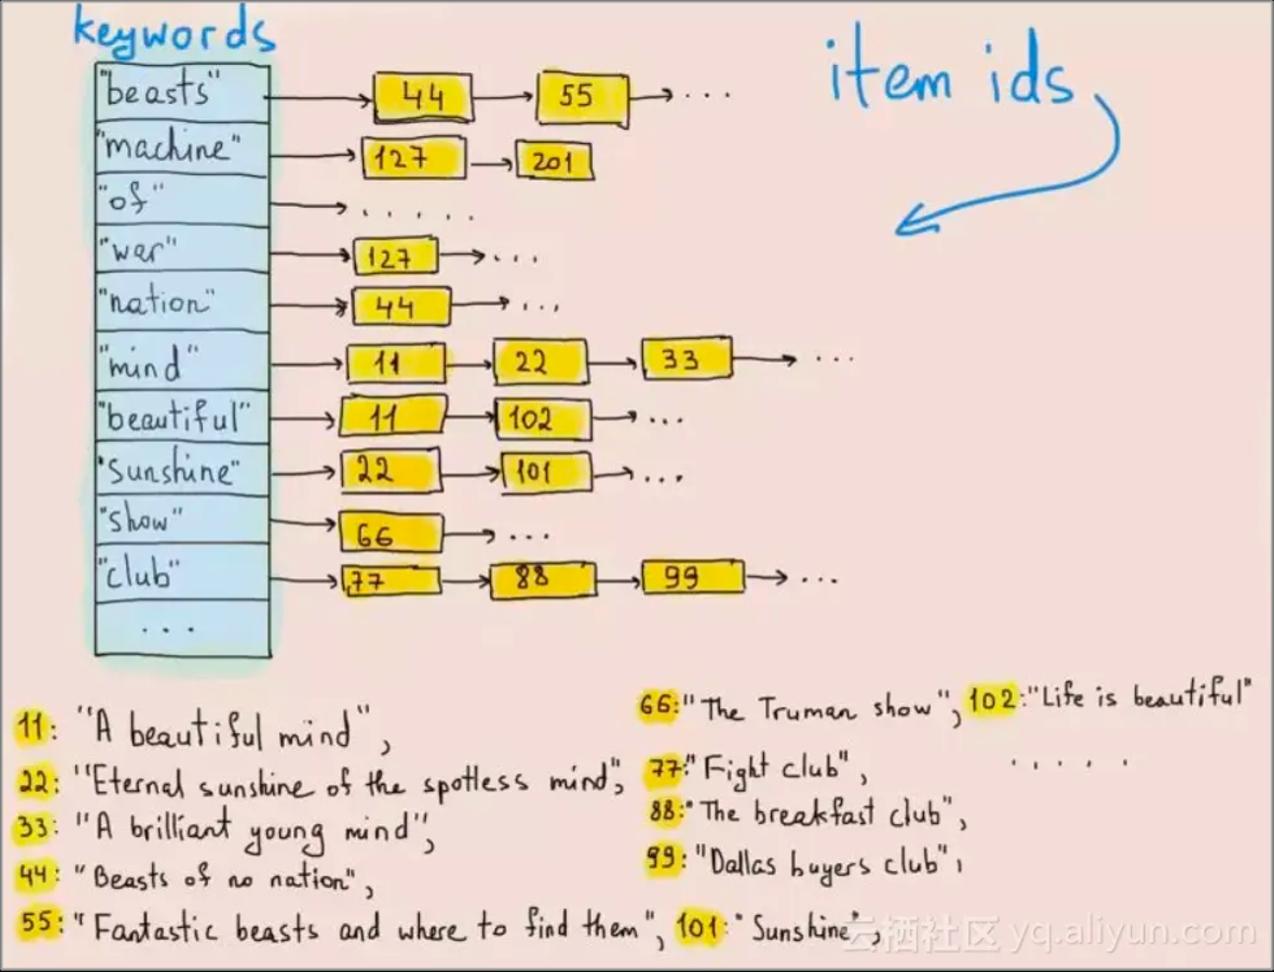 keywords
item ids
"beasts" 44 55 ...
"machine" 127 201
"of" .....
"war" 127 ...
"nation" 44 ...
"mind" 11 22 33 ...
"beautiful" 11 102 ...
"Sunshine" 22 101 ...
"show" 66 ...
"club" 77 88 99 ...
...
11: "A beautiful mind",
22: "Eternal sunshine of the spotless mind",
33: "A brilliant young mind",
44: "Beasts of no nation",
55: "Fantastic beasts and where to find them", 101: "Sunshine",
66: "The Truman show", 102: "Life is beautiful"
77: "Fight club", .....
88: "The breakfast club",
99: "Dallas buyers club",
云栖社区 yq.aliyun.com